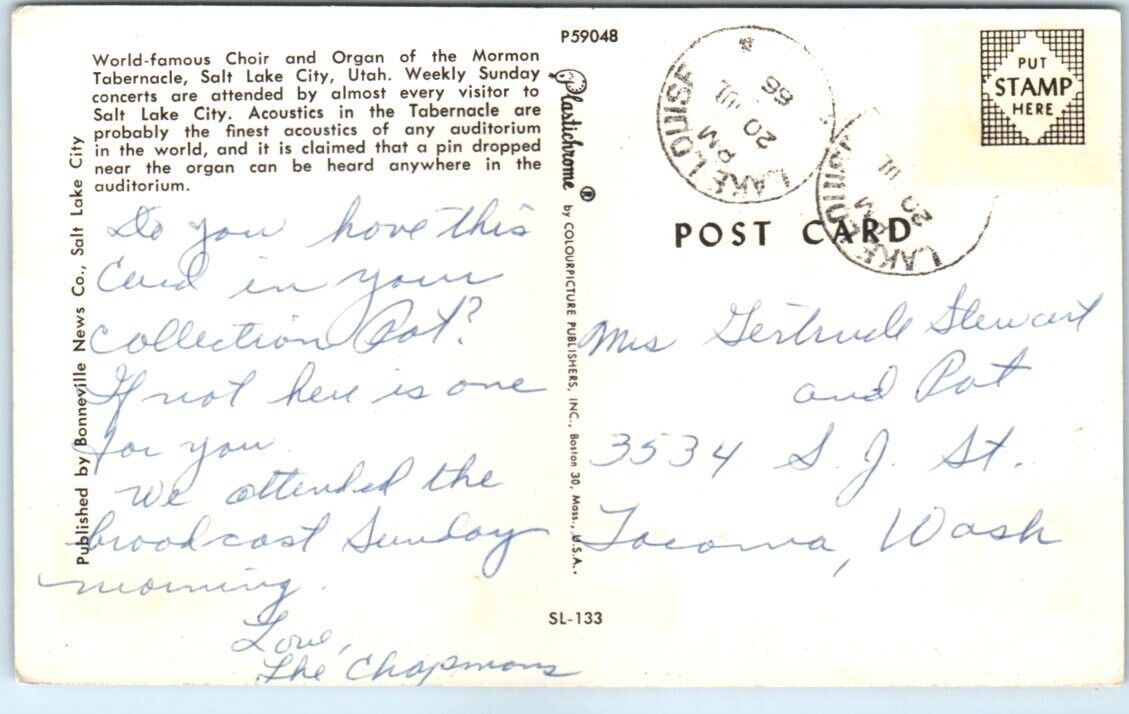 World-famous Choir and Organ of the Mormon
Tabernacle, Salt Lake City, Utah. Weekly Sunday
concerts are attended by almost every visitor to
Salt Lake City. Acoustics in the Tabernacle are
probably the finest acoustics of any auditorium
in the world, and it is claimed that a pin dropped
near the organ can be heard anywhere in the
auditorium.
Published by Bonneville News Co., Salt Lake City
Do you have this
Card in your
Collection Pat?
If not here is one
for you.
We attended the
broadcast Sunday
morning.
Love,
The Chapmans
P59048
Plastichrome® by COLOURPICTURE PUBLISHERS, INC., Boston 30, Mass., U.S.A.
SL-133
LAKE LOUISE
PM
20
JUL
66
LAKE LOUISE
PM
20
JUL
PUT
STAMP
HERE
POST CARD
Mrs Gertrude Stewart
and Pat
3534 S. J. St.
Tacoma, Wash